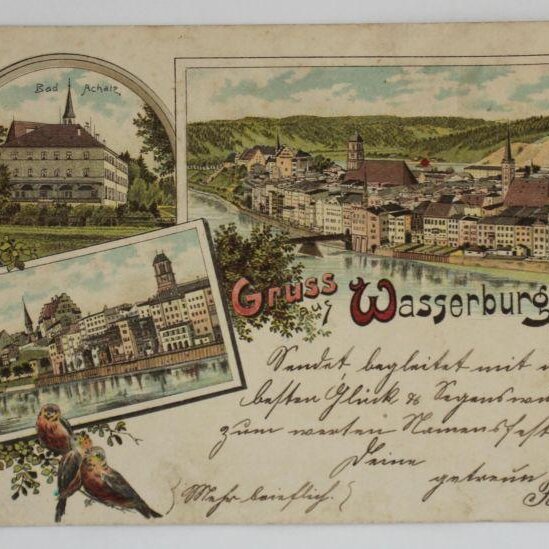 Bad Achatz
Gruss
aus
Wasserburg
Sendet begleitet mit
besten Glück & Segenswun
zum werten Namensfest
Deine
getreu
(Mehr brieflich.)